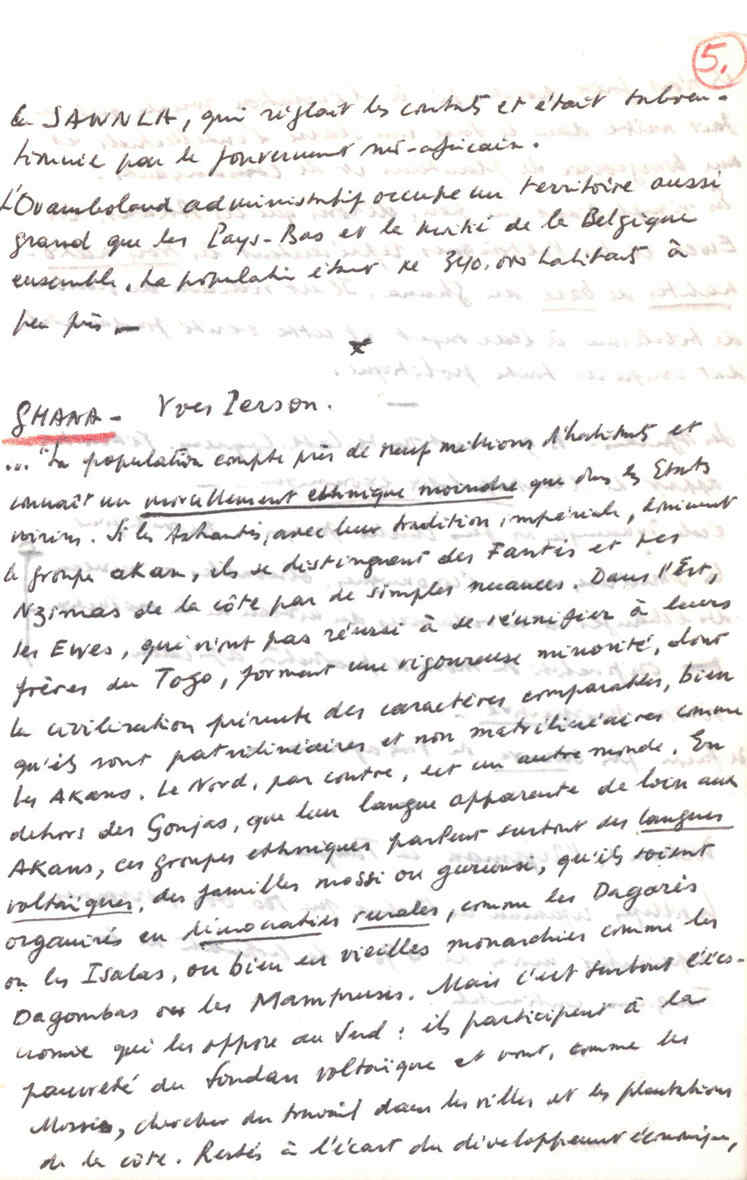 5.
la SAWNLA, qui réglait les contrats et était subven-
tionnée par le gouvernement sud-africain.
L'Ovamboland administratif occupe un territoire aussi
grand que les Pays-Bas et la moitié de la Belgique
ensemble, la population étant de 340.000 habitants à
peu près.
GHANA - Yves Person.
... "La population compte près de neuf millions d'habitants et
connaît un morcellement ethnique moindre que dans les Etats
voisins. Si les Ashantis, avec leur tradition impériale, dominent
le groupe akan, ils se distinguent des Fantis et des
Nzimas de la côte par de simples nuances. Dans l'Est,
les Ewes, qui n'ont pas réussi à se réunifier à leurs
frères du Togo, forment une vigoureuse minorité, dont
la civilisation présente des caractères comparables, bien
qu'ils sont patrilinéaires et non matrilinéaires comme
les Akans. Le Nord, par contre, est un autre monde. En
dehors des Gonjas, que leur langue apparente de loin aux
Akans, ces groupes ethniques parlent surtout des langues
voltaïques, des familles mossi ou gurunse, qu'ils soient
organisés en démocraties rurales, comme les Dagaris
ou les Isalas, ou bien en vieilles monarchies comme les
Dagombas ou les Mamprusis. Mais c'est surtout l'éco-
nomie qui les oppose au Sud : ils participent à la
pauvreté du Soudan voltaïque et vont, comme les
Mossis, chercher du travail dans les villes et les plantations
de la côte. Restés à l'écart du développement économique,